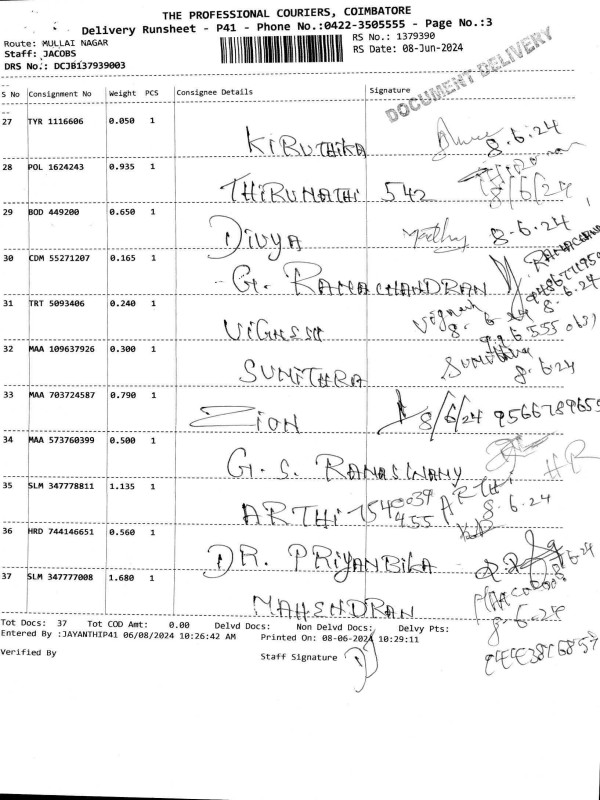 THE PROFESSIONAL COURIERS, COIMBATORE
Delivery Runsheet - P41 - Phone No.:0422-3505555 - Page No.:3
Route: MULLAI NAGAR
RS No.: 1379390
Staff: JACOBS
RS Date: 08-Jun-2024
DRS No.: DCJB137939003
DOCUMENT DELIVERY
S No Consignment No Weight PCS Consignee Details Signature
27 TYR 1116606 0.050 1
KIRUTHIKA 8.6.24
28 POL 1624243 0.935 1
THIRUNATHI 542 8/6/24
29 BOD 449200 0.650 1
DIVYA 8.6.24
30 CDM 55271207 0.165 1
G. RAMACHANDRAN 8.6.24
31 TRT 5093406 0.240 1
Vignesh 8.6.24
32 MAA 109637926 0.300 1
SUMITHRA 8.6.24
33 MAA 703724587 0.790 1
ZION 8/6/24 9566789655
34 MAA 573760399 0.500 1
G. S. RAMASWAMY
35 SLM 347778811 1.135 1
ARTHI 7540039 455 ARTHI 8.6.24
36 HRD 744146651 0.560 1
DR. PRIYANBIKA 8.6.24
37 SLM 347777008 1.680 1
MAHENDRAN 8.6.24
Tot Docs: 37 Tot COD Amt: 0.00 Delvd Docs: Non Delvd Docs: Delvy Pts:
Entered By :JAYANTHIP41 06/08/2024 10:26:42 AM Printed On: 08-06-2024 10:29:11
Verified By
Staff Signature